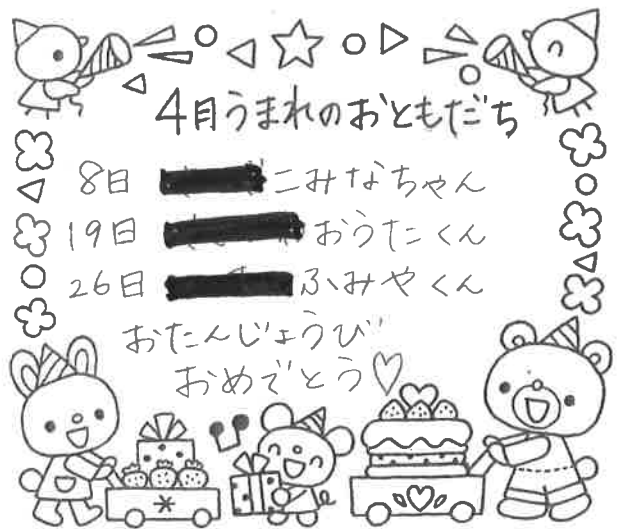 4月うまれのおともだち
8日 こみなちゃん
19日 おうたくん
26日 ふみやくん
おたんじょうび
おめでとう♡